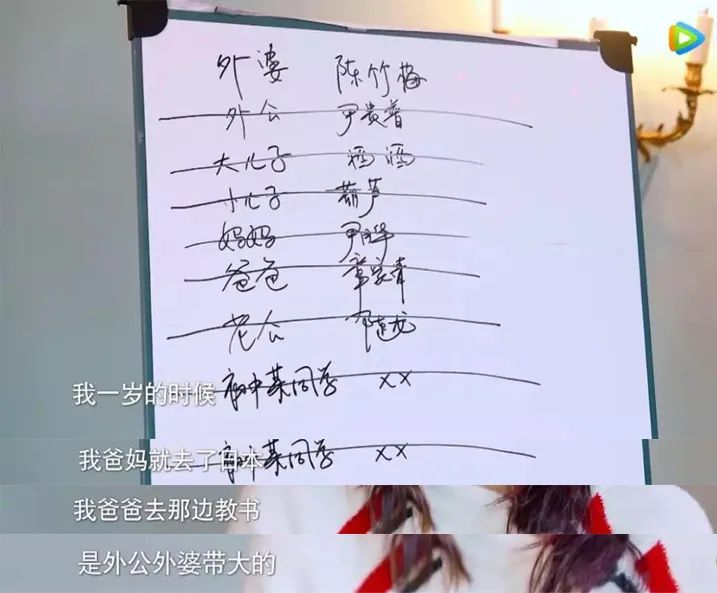 外婆 陈竹梅
外公 尹贵普
大儿子 酒酒
小儿子 葫芦
妈妈 尹
爸爸 章
老公 龙
高中某同学 ××
我一岁的时候
高中某同学 ××
我爸妈就去了日本
我爸爸去那边教书
是外公外婆带大的